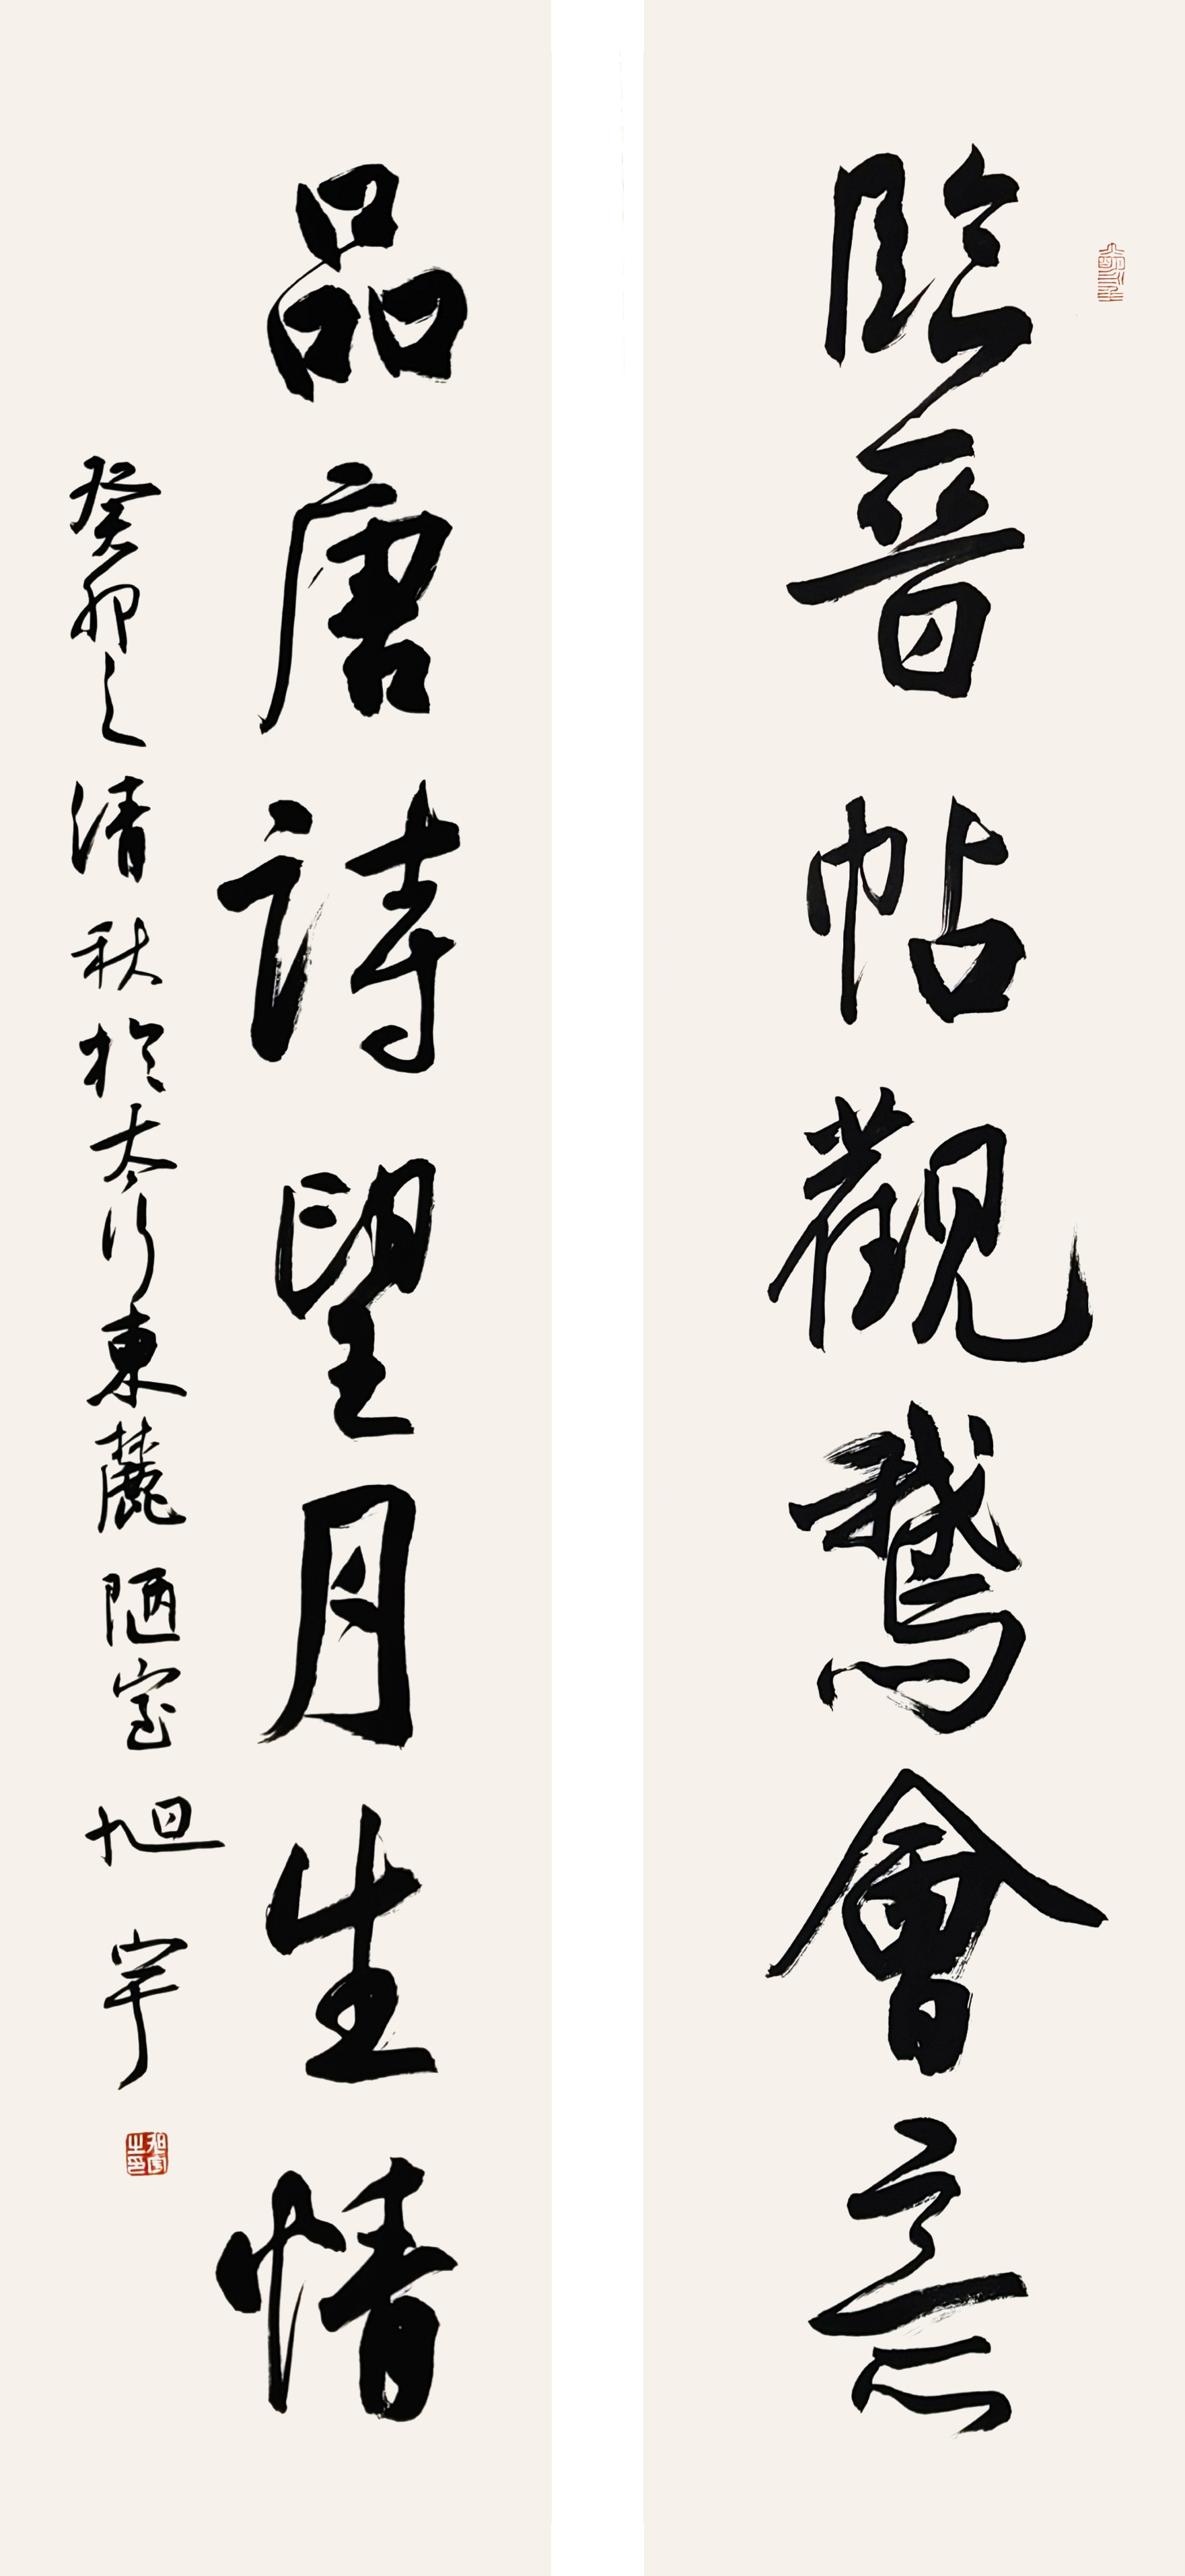 臨晉帖觀鵞會意
品唐詩望月生情
癸卯之清秋於太行東麓陋室旭宇
旭宇之印